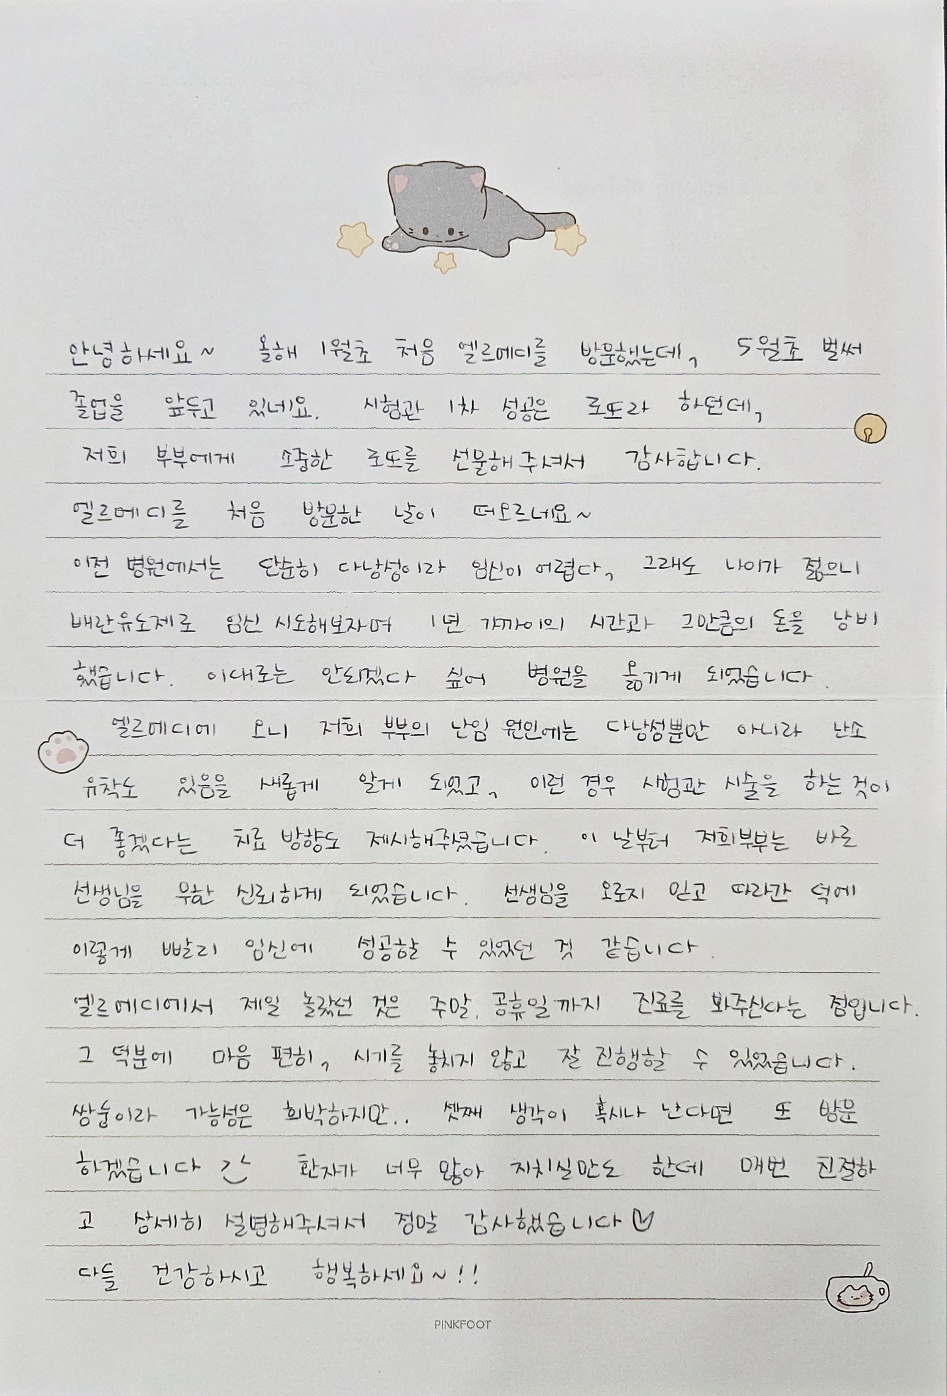 안녕하세요~ 올해 1월초 처음 엘르메디를 방문했는데, 5월초 벌써
졸업을 앞두고 있네요. 시험관 1차 성공은 로또라 하던데,
저희 부부에게 소중한 로또를 선물해주셔서 감사합니다.
엘르메디를 처음 방문한 날이 떠오르네요~
이전 병원에서는 단순히 다낭성이라 임신이 어렵다, 그래도 나이가 젊으니
배란유도제로 임신 시도해보자며 1년 가까이의 시간과 그만큼의 돈을 낭비
했습니다. 이대로는 안되겠다 싶어 병원을 옮기게 되었습니다.
엘르메디에 오니 저희 부부의 난임 원인에는 다낭성뿐만 아니라 난소
유착도 있음을 새롭게 알게 되었고, 이런 경우 시험관 시술을 하는것이
더 좋겠다는 치료 방향도 제시해주셨습니다. 이 날부터 저희부부는 바로
선생님을 무한 신뢰하게 되었습니다. 선생님을 오로지 믿고 따라간 덕에
이렇게 빨리 임신에 성공할 수 있었던 것 같습니다.
엘르메디에서 제일 놀랐던 것은 주말, 공휴일까지 진료를 봐주신다는 점입니다.
그 덕분에 마음 편히, 시기를 놓치지 않고 잘 진행할 수 있었습니다.
쌍둥이라 가능성은 희박하지만.. 셋째 생각이 혹시나 난다면 또 방문
하겠습니다 환자가 너무 많아 지치실만도 한데 매번 친절하
고 상세히 설명해주셔서 정말 감사했습니다♡
다들 건강하시고 행복하세요~!!
PINKFOOT